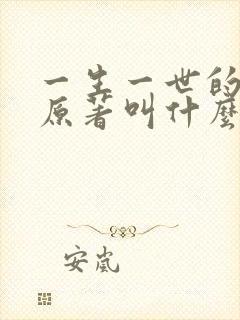 一生一世的
原著叫什麼
安岚